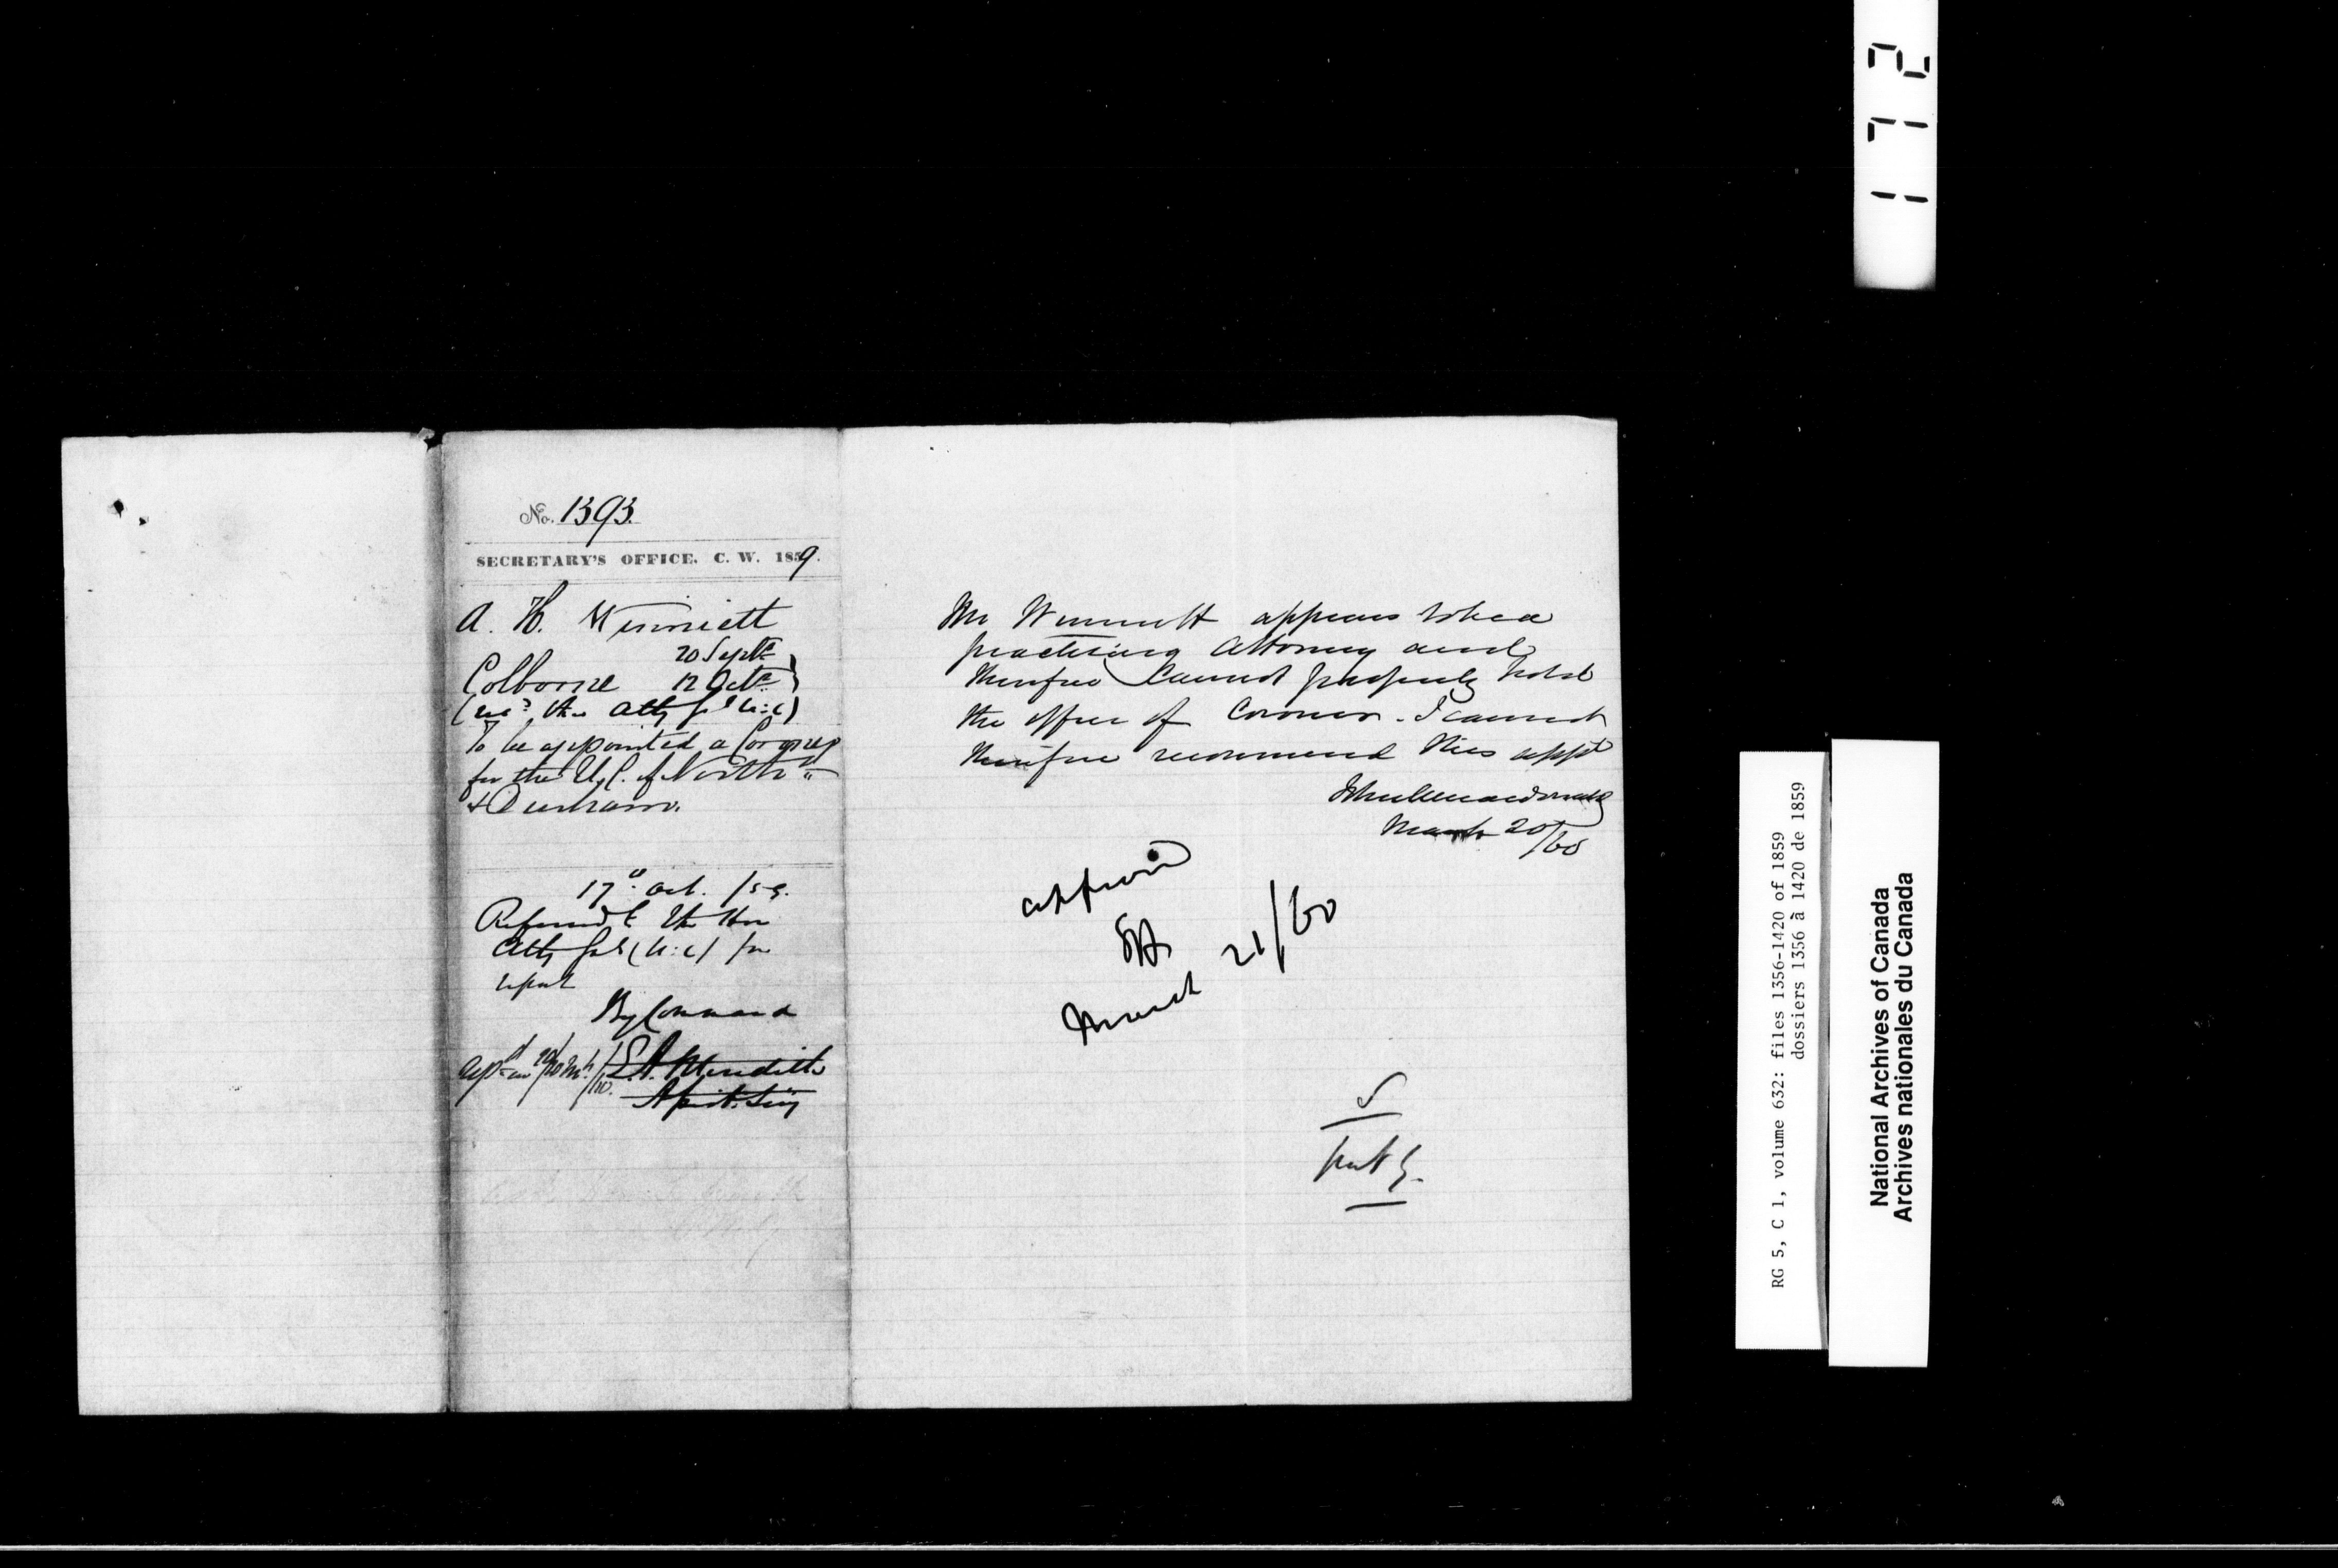 No. 1393.
SECRETARY'S OFFICE, C. W. 1859.
A. H. Winniett
20 Septr
Colborne 12 Octr
(ref. thro Atty Gl U:C)
To be appointed a Coroner
for the U. C. of North'd
& Durham.
17th Oct. /59.
Referred to the Hon
Atty Genl (U:C) for
report
By Command
E. A. Meredith
Asst. Secy
Mr Winniett appears to be a
practising Attorney and
therefore cannot properly hold
the office of Coroner. I cannot
therefore recommend this appt
John A Macdonald
March 20/60
approved
March 21/60
RG 5, C 1, volume 632: files 1356-1420 of 1859
dossiers 1356 à 1420 de 1859
National Archives of Canada
Archives nationales du Canada
172